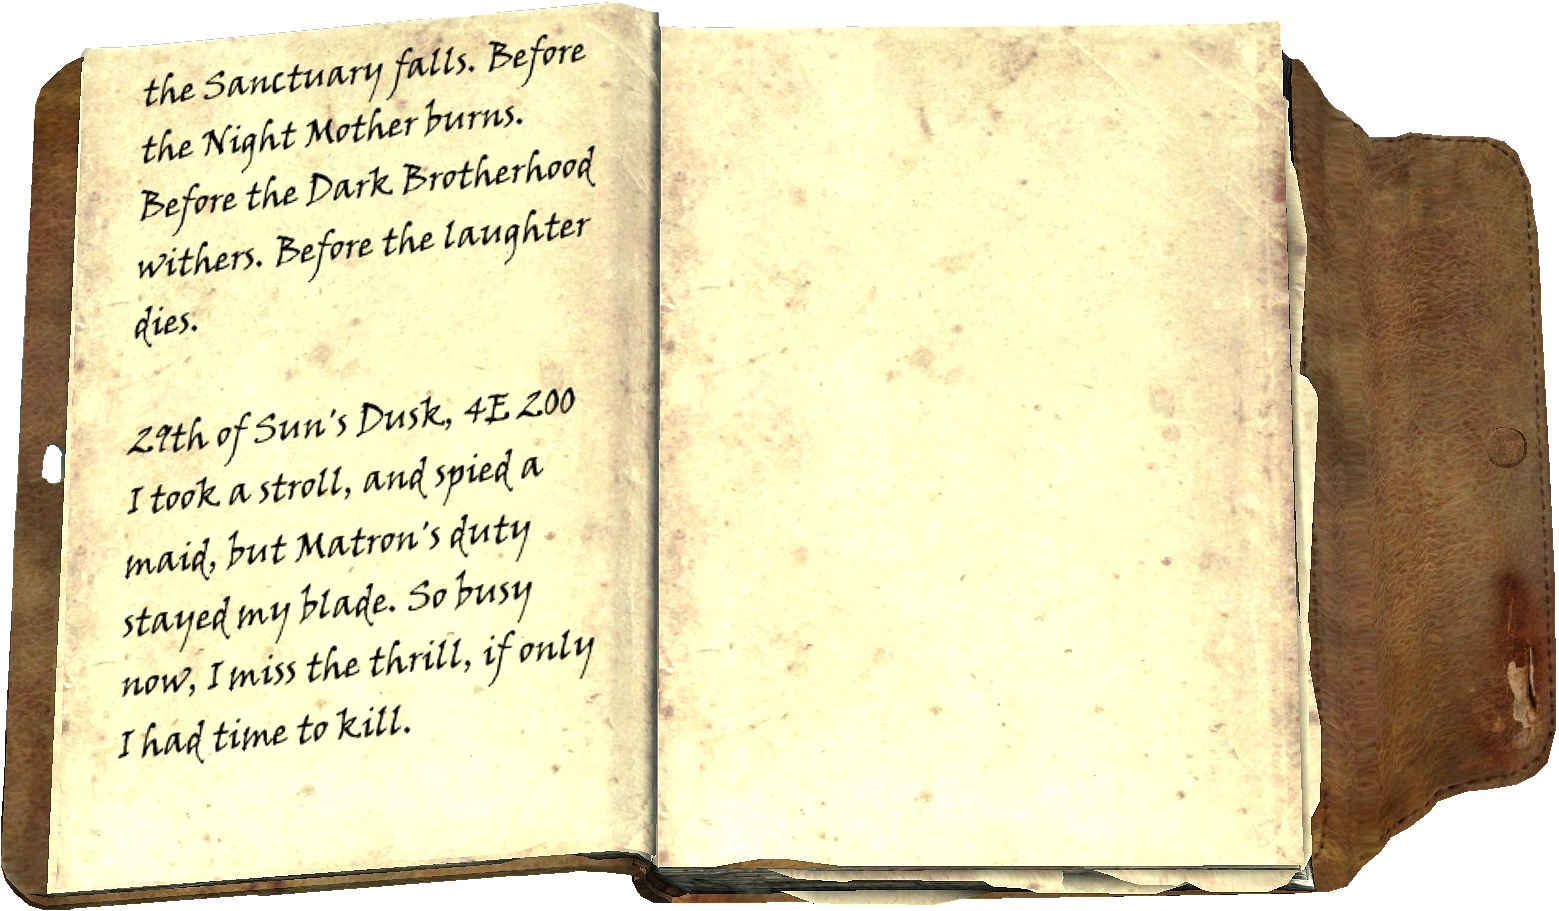 the Sanctuary falls. Before
the Night Mother burns.
Before the Dark Brotherhood
withers. Before the laughter
dies.
29th of Sun's Dusk, 4E 200
I took a stroll, and spied a
maid, but Matron's duty
stayed my blade. So busy
now, I miss the thrill, if only
I had time to kill.